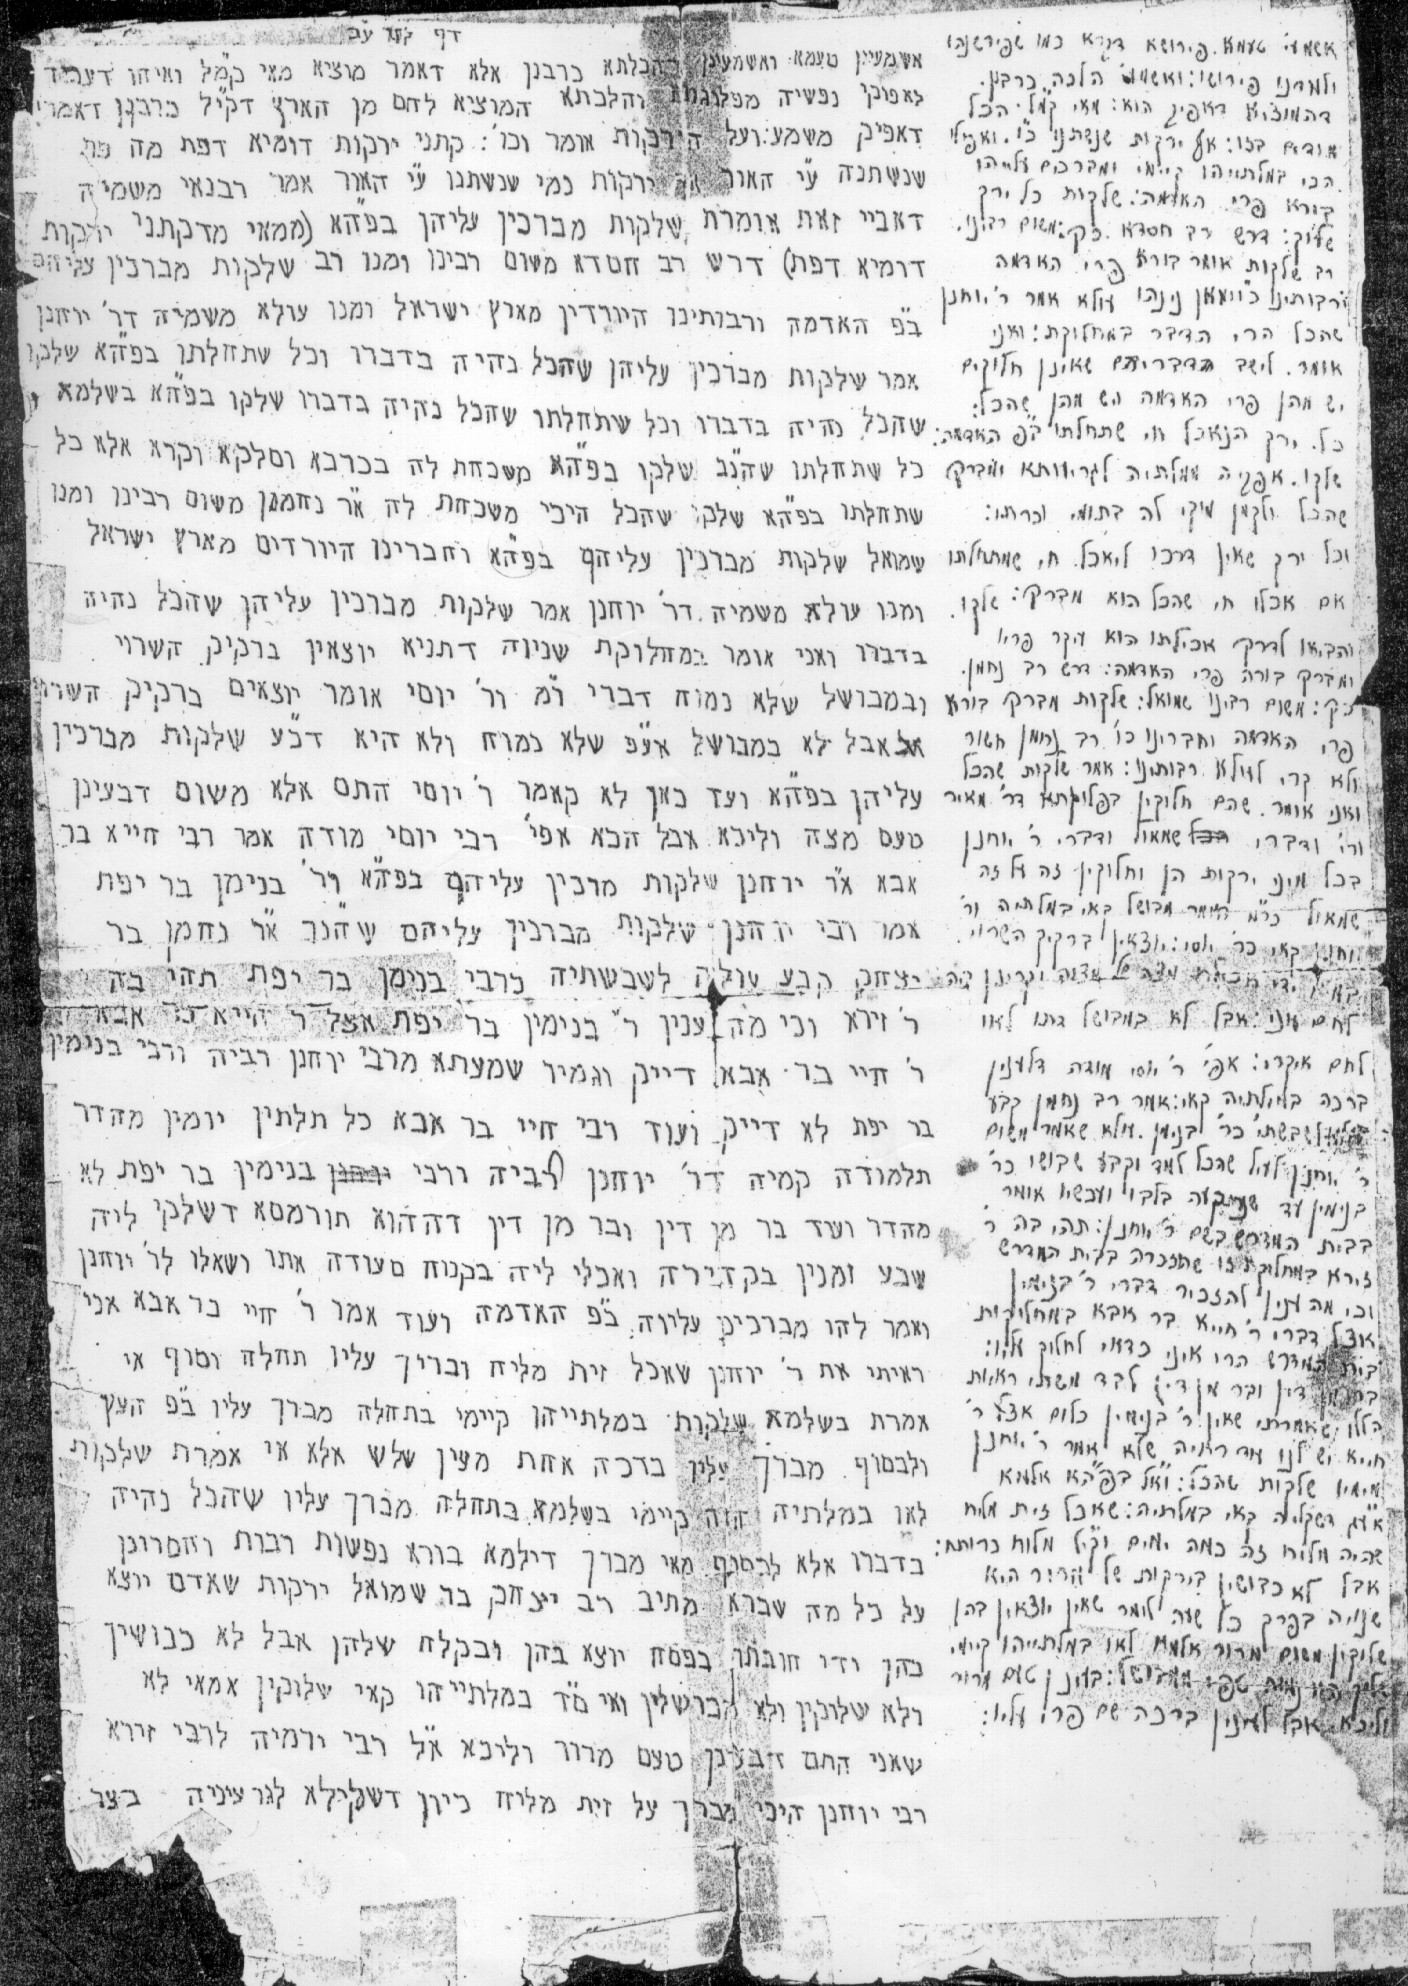 דף
אשמעינן טעמא ואשמעינן כרבנן אלא דאמר מוציא מאי קמ"ל
לאפוקי נפשיה מפלוגתא והלכתא המוציא לחם מן הארץ דקי"ל כרבנן דאמרי
דאפיק משמע: ועל הירקות אומר וכו': קתני ירקות דומיא דפת מה פת
שנשתנה ע"י האור אף ירקות נמי שנשתנו ע"י האור אמר רבנאי משמיה
דאביי זאת אומרת שלקות מברכין עליהן בפה"א (ממאי מדקתני ירקות
דומיא דפת) דרש רב חסדא משום רבינו ומנו רב שלקות מברכין עליהם
ב"פ האדמה ורבותינו היורדין מארץ ישראל ומנו עולא משמיה דר' יוחנן
אמר שלקות מברכין עליהן שהכל נהיה בדברו וכל שתחלתו בפה"א שלקו
שהכל נהיה בדברו וכל שתחלתו שהכל נהיה בדברו שלקו בפה"א בשלמא
כל שתחלתו שהנ"ב שלקו בפה"א משכחת לה בכרבא וסלקא וקרא אלא כל
שתחלתו בפה"א שלקו שהכל היכי משכחת לה א"ר נחמן משום רבינו ומנו
שמואל שלקות מברכין עליהם בפה"א וחברינו היורדים מארץ ישראל
ומנו עולא משמיה דר' יוחנן אמר שלקות מברכין עליהן שהכל נהיה
בדברו ואני אומר במחלוקת שנויה דתניא יוצאין ברקיק השרוי
ובמבושל שלא נמוח דברי ר"מ ור' יוסי אומר יוצאים ברקיק השרוי
אבל לא במבושל אע"פ שלא נמוח ולא היא דכ"ע שלקות מברכין
עליהן בפה"א ועד כאן לא קאמר ר' יוסי התם אלא משום דבעינן
טעם מצה וליכא אבל הכא אפי' רבי יוסי מודה אמר רבי חייא בר
אבא א"ר יוחנן שלקות מרכין עליהם בפה"א ור' בנימן בר יפת
אמר רבי יוחנן שלקות מברכין עליהם שהנ"ב א"ר נחמן בר
יצחק קבע עולא לשבשתיה כרבי בנימן בר יפת תהי בה
ר' זירא וכי מה ענין ר' בנימין בר יפת אצל ר' חייא בר אבא
ר' חיי בר אבא דייק וגמיר שמעתא מרבי יוחנן רביה ורבי בנימין
בר יפת לא דייק ועוד רבי חיי בר אבא כל תלתין יומין מהדר
תלמודה קמיה דר' יוחנן רביה ורבי בנימין בר יפת לא
מהדר ועוד בר מן דין ובר מן דין דההוא תורמסא דשלקי ליה
שבע זמנין בקדירה ואכלי ליה בקנוח סעודה אתו ושאלו לר' יוחנן
ואמר להו מברכין עליוה ב"פ האדמה ועוד אמר ר' חיי בר אבא אני
ראיתי את ר' יוחנן שאכל זית מליח ובריך עליו תחלה וסוף אי
אמרת בשלמא שלקות במלתייהו קיימי בתחלה מברך עליו ב"פ העץ
ולבסוף מברך עליו ברכה אחת מעין שלש אלא אי אמרת שלקות
לאו במלתיה קיימי בשלמא בתחלה מברך עליו שהכל נהיה
בדברו אלא לבסוף מאי מברך דילמא בורא נפשות רבות וחסרונן
על כל מה שברא מתיב רב יצחק בר שמואל ירקות שאדם יוצא
בהן ידי חובתו בפסח יוצא בהן ובקלח שלהן אבל לא כבושין
ולא שלוקין ולא מבושלין ואי ס"ד במלתייהו קאי שלוקין אמאי לא
שאני התם דבעינן טעם מרור וליכא א"ל רבי ירמיה לרבי זירא
רבי יוחנן היכי מברך על זית מליח כיון דשקילא לגרעיניה בצר
אשמעי' טעמא. פירושא דקרא כמו שפירשנהו
ולמדנו פירושו: ואשמע' הלכה כרבנן.
דהמוציא דאפיק הוא: מאי קמ"ל. הכל
מודים בזו: אף ירקות שנשתנו כו'. ואפילו
הכי במלתייהו קיימי ומברכים עלייהו
בורא פרי האדמה: שלקות כל ירק
שלוק: דרש רב חסדא כו': משום רבינו.
רב שלקות אומר בורא פרי האדמה
ורבותינו כו' ומאן נינהו עולא אמר ר' יוחנן
שהכל הרי הדבר במחלוקת: ואני
אומר. לישב הדברים שאינן חלוקים
יש מהן פרי האדמה ויש מהן שהכל:
כל. ירק הנאכל חי שתחלתו ב"פ האדמה:
שלקו. אפקיה ממלתיה לגריעותא ומברך
שהכל ולקמן מוקי לה בתומי וכרתי:
וכל ירק שאין דרכו ליאכל חי שמתחלתו
אם אכלו חי שהכל הוא מברך: שלקו.
והביאו לדרך אכילתו הוא עיקר פריו
ומברך בורא פרי האדמה: דרש רב נחמן.
כו': משום רבינו שמואל: שלקות מברך בורא
פרי האדמה וחברינו כו' רב נחמן חשוב
ולא קרי לעולא רבותינו: אמר שלקות שהכל
ואני אומר. שהם חלוקין בפלוגתא דר' מאיר
ור"י ודברי שמואל ודברי ר' יוחנן
בכל מיני ירקות הן וחלוקין זה על זה
לחם עוני: אבל לא במבושל דתו לאו
לחם איקרי: אפי' ר' יוסי מודה דלענין
ברכה במילתיה קאי: אמר רב נחמן קבע
לשבשתי' כר' בנימן. עולא שאמר משום
ר' יוחנן לעיל שהכל למד וקבע שבושו כר'
בנימין עד שנתקעה בלבו ועכשיו אומר
בבית המדרש בשם ר' יוחנן: תהי בה ר'
זירא במחלוקת זו שהוזכרה בבית המדרש
וכי מה ענין להזכיר דברי ר' בנימין
אצל דברי ר' חייא בר אבא במחלוקות
בית המדרש הרי אינו כדאי לחלוק עליו:
בר מן דין ובר מן דין לבד משתי ראיות
הללו שאמרתי שאין ר' בנימין כלום אצל ר'
חייא יש לנו עוד ראיה שלא אמר ר' יוחנן
מימיו שלקות שהכל: וא"ל בפ"הא אלמא
אע"ג דשקליה קאי במלתיה: שאכל זית מליח
שהיה מליח זה כמה ימים וקי"ל מלוח כרותח:
אבל לא כבושין בירקות של מרור היא
שנויה בפרק כל שעה לומר שאין יוצאין בהן
שלוקין משום מרור אלמא לאו במלתייהו קיימי
שלוק הוי נמוח טפי ממבושל: בעינן טעם מרור
וליכא אבל לענין ברכה שם פרי עליו: